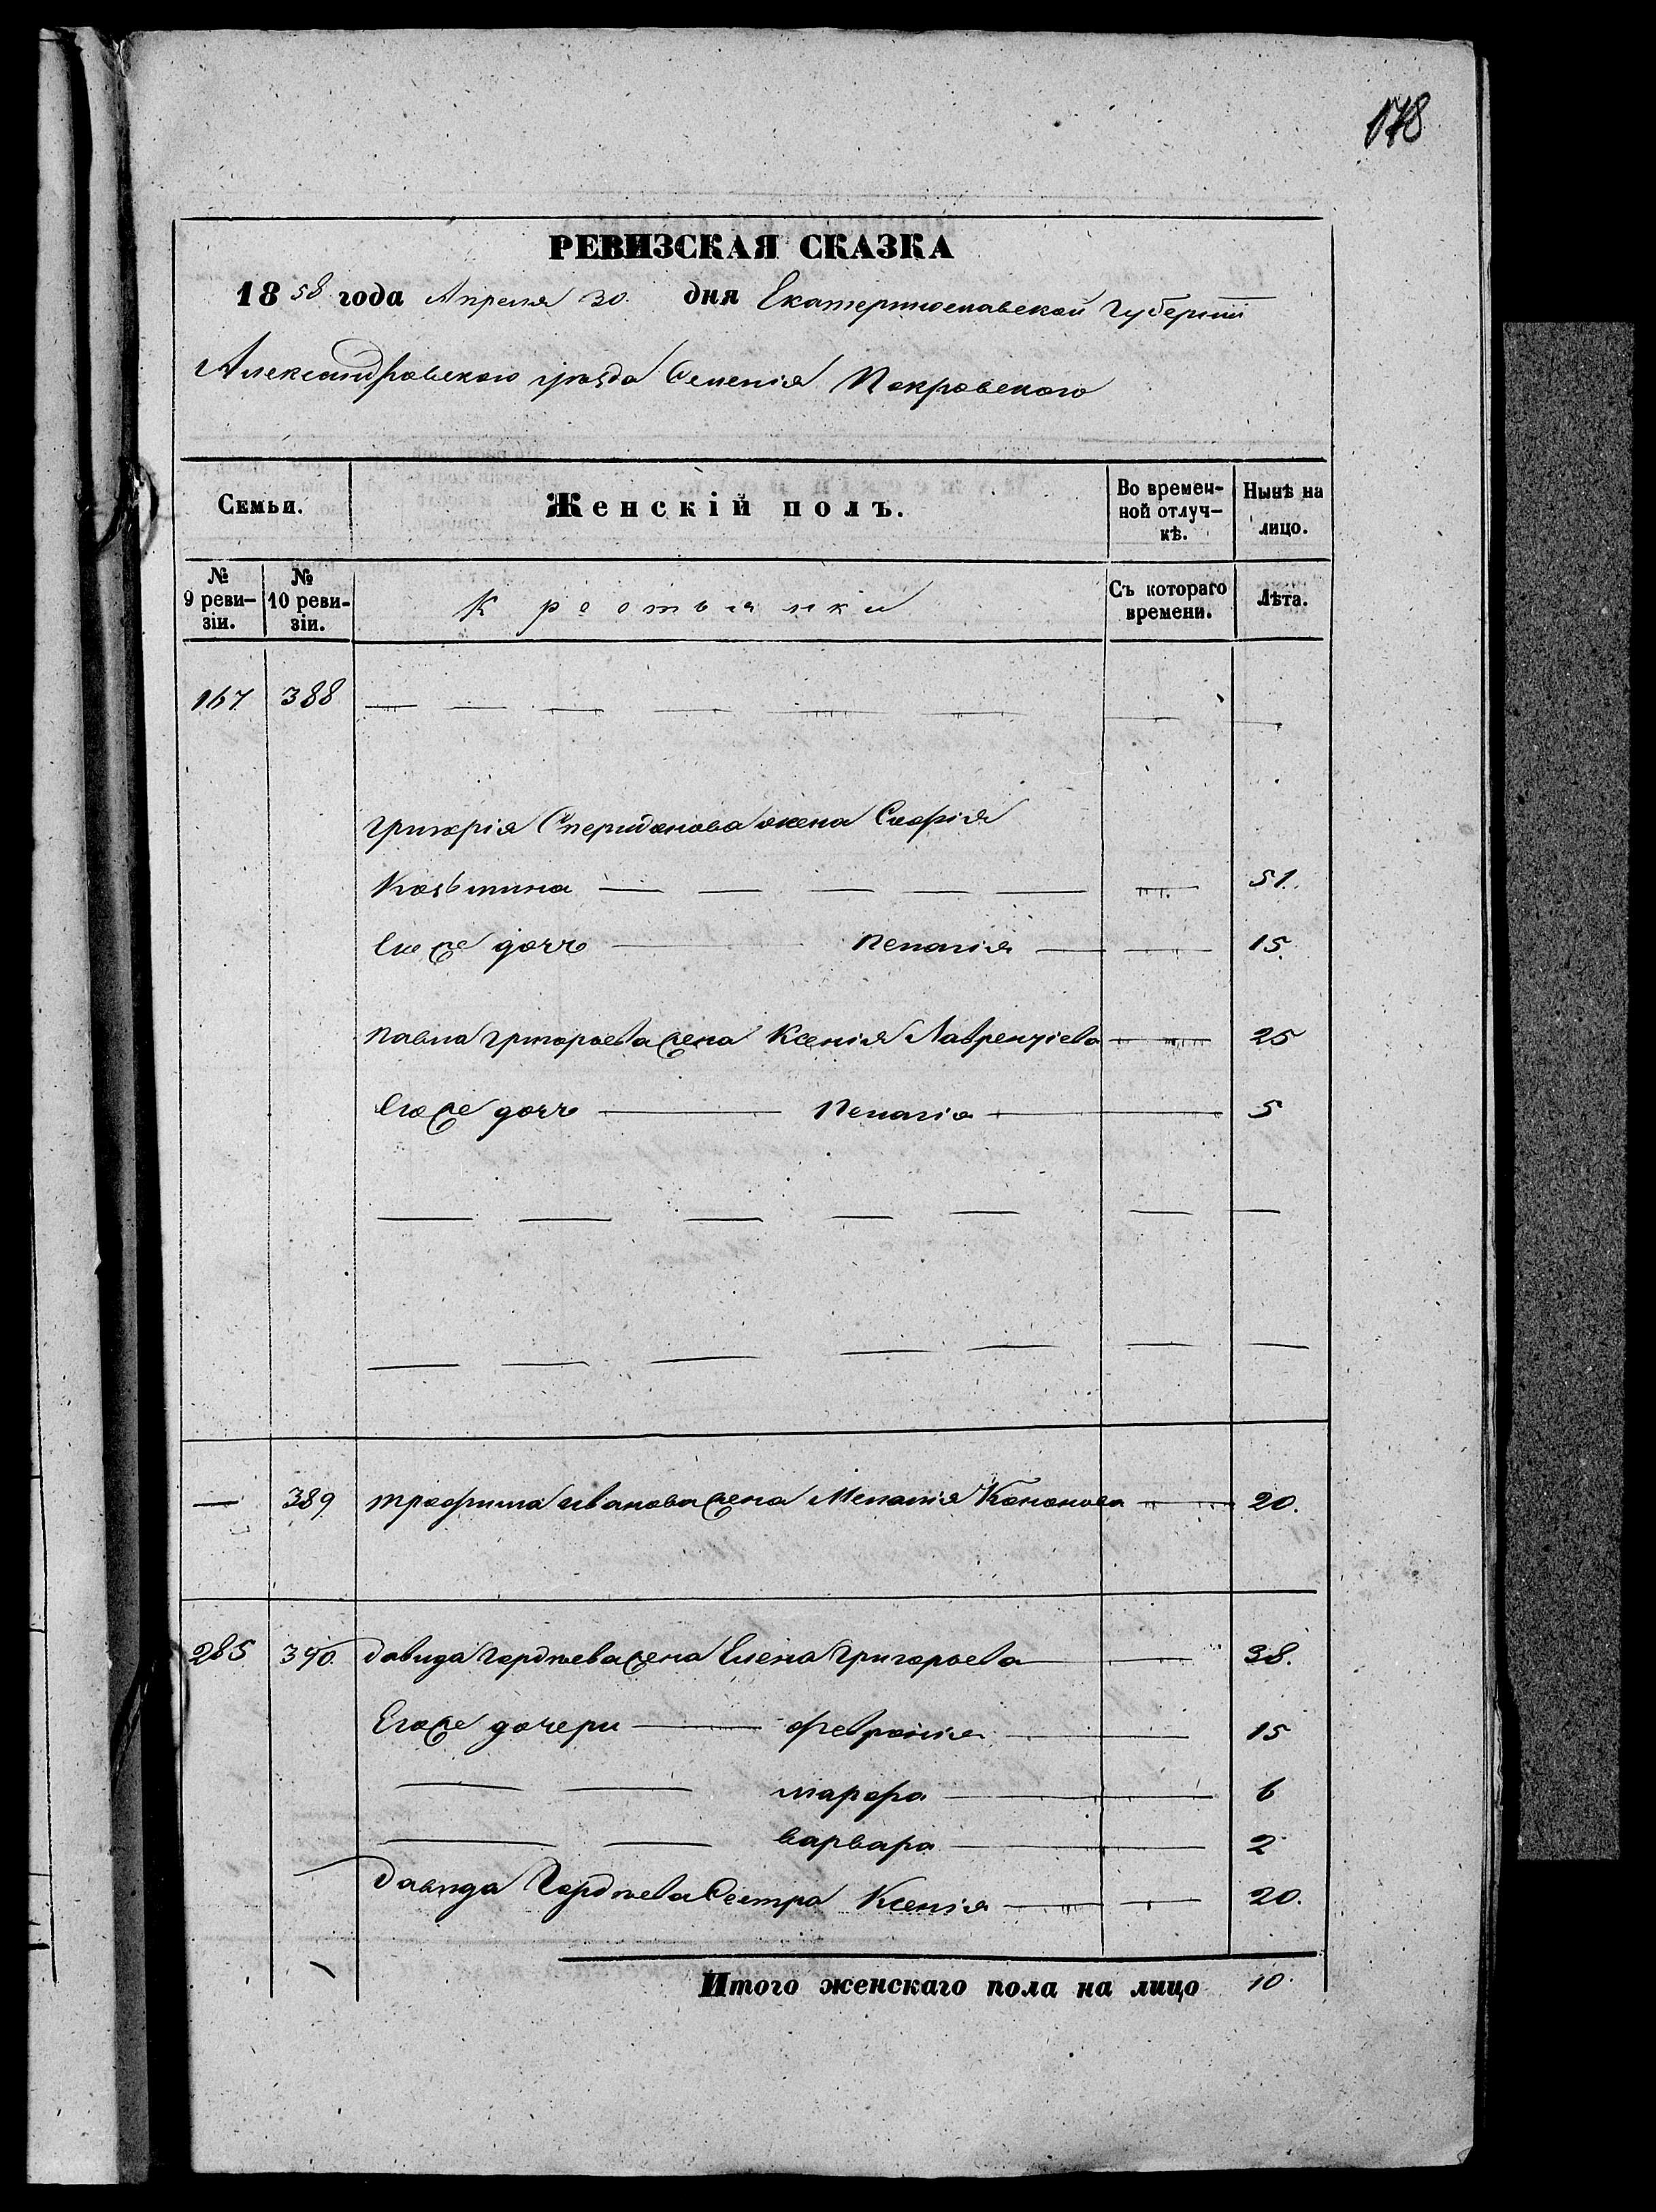 178
РЕВИЗСКАЯ СКАЗКА
1858 года Апреля 30 дня Екатеринославской Губернiи
Александровского уезда Селенiя Покровского
Семьи.
Женскiй полъ.
Во времен-
ной отлуч-
кѣ.
Нынѣ на
лицо.
№
9 реви-
зiи.
№
10 реви-
зiи.
Крестьянки
Съ котораго
времени.
Лѣта.
167 388 — — — — — — — —
Григорiя Сперидонова жена Софiя
Козьмина — — — — — — 51.
Его же дочь — Пелагiя — — 15.
Павла Григорьева жена Ксенiя Лаврентiева — — 25
Его же дочь — Пелагiя — 5
— — — — — — —
— — — — — — —
— 389 Трофима Иванова жена Меланiя Кононова — — 20.
285 390 Давида Гордеева жена Елена Григорьева — — 38.
Его же дочери — Февронiя — 15
— — Марфа — 6
— — Варвара — 2
Давида Гордеева Сестра Ксенiя — — 20.
Итого женскаго пола на лицо 10.